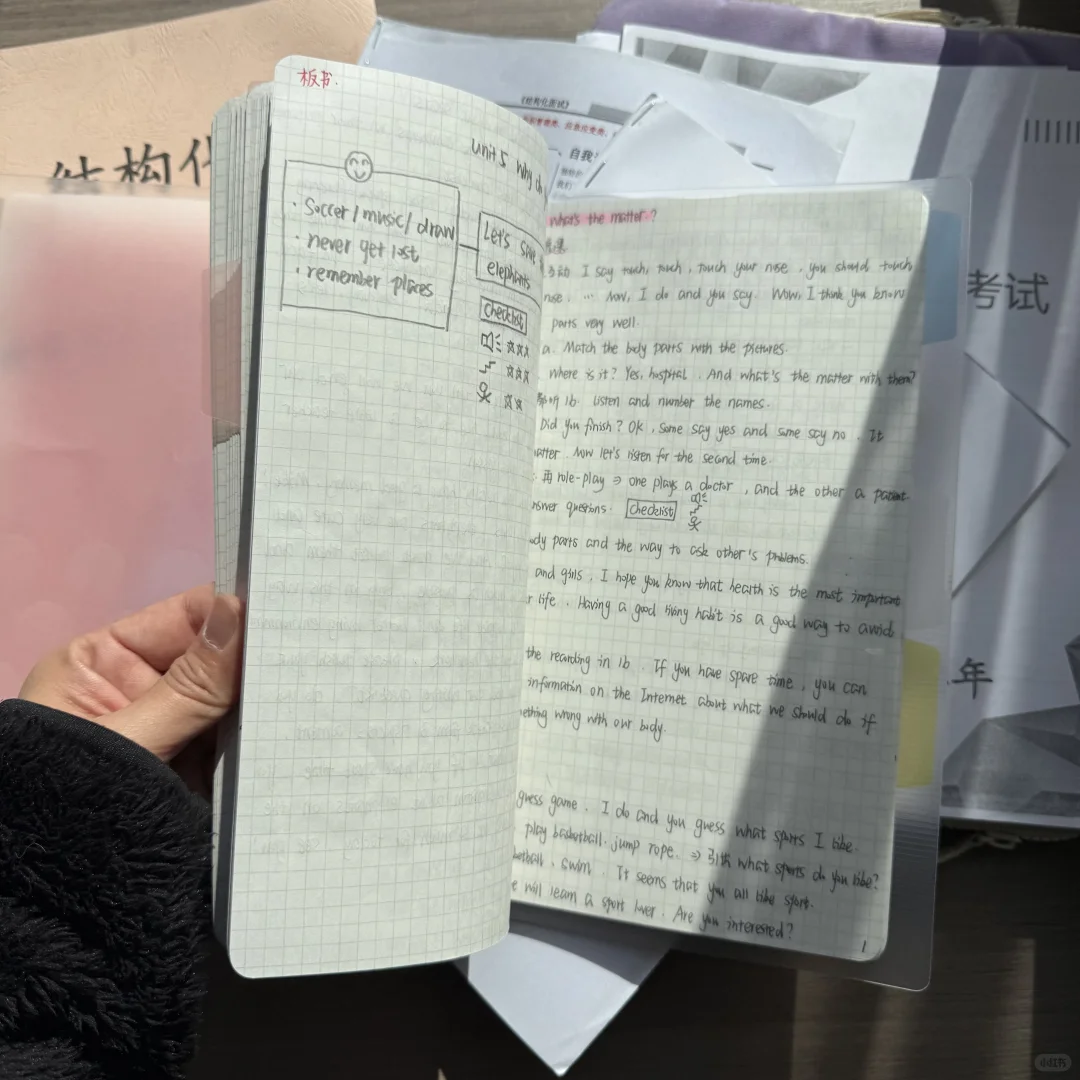 板书.
Unit 5 Why
· Soccer / music / draw
· never get lost
· remember places
Let's save
elephants
checklist
What's the matter?
I say touch, touch, touch your nose, you should touch
nose. ... Now, I do and you say. Wow, I think you know
parts very well.
a. Match the body parts with the pictures.
Where is it? Yes, hospital. And what's the matter with them?
1b. Listen and number the names.
Did you finish? Ok, some say yes and some say no. It
matter. Now let's listen for the second time.
再 role-play ⇒ one plays a doctor, and the other a patient
answer questions. checklist
body parts and the way to ask other's problems.
and girls, I hope you know that health is the most important
life. Having a good living habit is a good way to avoid
the recording in 1b. If you have spare time, you can
informatin on the Internet about what we should do if
wrong with our body.
guess game. I do and you guess what sports I like.
play basketball, jump rope. ⇒ 引出 what sports do you like?
swim. It seems that you all like sport.
will learn a sport lover. Are you interested?
1
《结构化面试》
自我
我们
结构化
考试
年